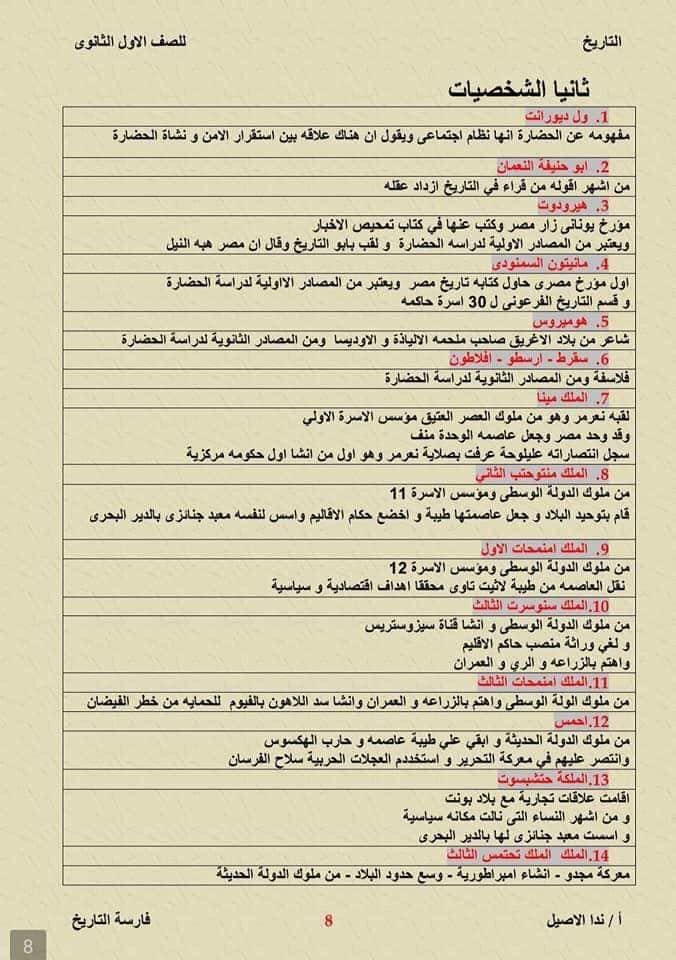 التاريخ
للصف الاول الثانوى
ثانيا الشخصيات
1. ول ديورانت
مفهومه عن الحضارة انها نظام اجتماعى ويقول ان هناك علاقه بين استقرار الامن و نشاة الحضارة
2. ابو حنيفة النعمان
من اشهر اقوله من قراء في التاريخ ازداد عقله
3. هيرودوت
مؤرخ يونانى زار مصر وكتب عنها في كتاب تمحيص الاخبار
ويعتبر من المصادر الاولية لدراسه الحضارة و لقب بابو التاريخ وقال ان مصر هبه النيل
4. مانيتون السمنودى
اول مؤرخ مصرى حاول كتابه تاريخ مصر ويعتبر من المصادر الااولية لدراسة الحضارة
و قسم التاريخ الفرعونى ل 30 اسرة حاكمه
5. هوميروس
شاعر من بلاد الاغريق صاحب ملحمه الالياذة و الاوديسا ومن المصادر الثانوية لدراسة الحضارة
6. سقرط - ارسطو - افلاطون
فلاسفة ومن المصادر الثانوية لدراسة الحضارة
7. الملك مينا
لقبه نعرمر وهو من ملوك العصر العتيق مؤسس الاسرة الاولي
وقد وحد مصر وجعل عاصمه الوحدة منف
سجل انتصاراته عليلوحة عرفت بصلاية نعرمر وهو اول من انشا اول حكومه مركزية
8. الملك منتوحتب الثاني
من ملوك الدولة الوسطى ومؤسس الاسرة 11
قام بتوحيد البلاد و جعل عاصمتها طيبة و اخضع حكام الاقاليم واسس لنفسه معبد جنائزى بالدير البحرى
9. الملك امنمحات الاول
من ملوك الدولة الوسطى ومؤسس الاسرة 12
نقل العاصمه من طيبة لاثيت تاوى محققا اهداف اقتصادية و سياسية
10.الملك سنوسرت الثالث
من ملوك الدولة الوسطى و انشا قناة سيزوستريس
و لغي وراثة منصب حاكم الاقليم
واهتم بالزراعه و الري و العمران
11.الملك امنمحات الثالث
من ملوك الولة الوسطى واهتم بالزراعه و العمران وانشا سد اللاهون بالفيوم للحمايه من خطر الفيضان
12.احمس
من ملوك الدولة الحديثة و ابقي علي طيبة عاصمه و حارب الهكسوس
وانتصر عليهم في معركة التحرير و استخددم العجلات الحربية سلاح الفرسان
13.الملكة حتشبسوت
اقامت علاقات تجارية مع بلاد بونت
و من اشهر النساء التى نالت مكانه سياسية
و اسست معبد جنائزى لها بالدير البحرى
14.الملك الملك تحتمس الثالث
معركة مجدو - انشاء امبراطورية - وسع حدود البلاد - من ملوك الدولة الحديثة
أ / ندا الاصيل
8
فارسة التاريخ
8